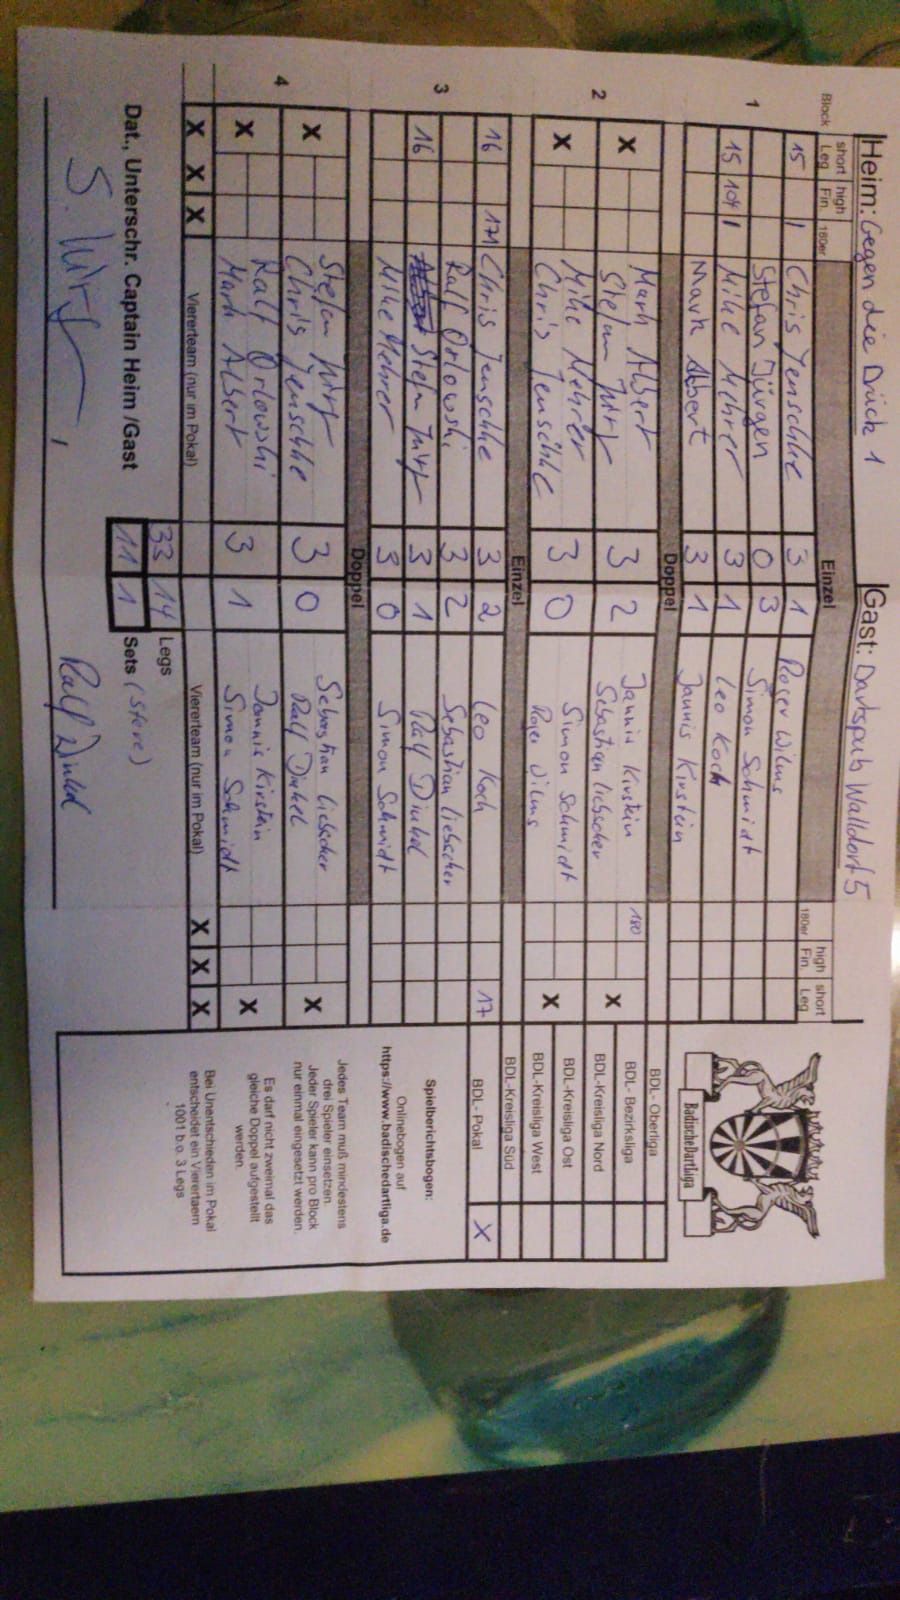 Heim: Gegen die Drück 1 Gast: Dartspub Walldorf 5
Block short Leg high Fin. 180er Einzel 180er high Fin. short Leg
1
15 I Chris Jenschke 3 1 Roger Wilms
Stefan Jürgen 0 3 Simon Schmidt
15 104 I Mike Mehrer 3 1 Leo Koch
Mark Albert 3 1 Jannis Kirstein
Doppel
2
X Mark Albert 3 2 Jannis Kirstein 180 X
Stefan Sebastian Liebscher
X Mike Mehrer 3 0 Simon Schmidt X
Chris Jenschke Roger Wilms
Einzel
3
16 171 Chris Jenschke 3 2 Leo Koch 17
Ralf Orlowski 3 2 Sebastian Liebscher
16 Stefan 3 1 Ralf Dinkel
Mike Mehrer 3 0 Simon Schmidt
Doppel
4
X Stefan 3 0 Sebastian Liebscher X
Chris Jenschke Ralf Dinkel
X Ralf Orlowski 3 1 Jannis Kirstein X
Mark Albert Simon Schmidt
X X X Viererteam (nur im Pokal) Viererteam (nur im Pokal) X X X
33 14 Legs
11 1 Sets (Store)
Dat., Unterschr. Captain Heim /Gast
S. Ralf Dinkel
BadischeDartLiga
BDL - Oberliga
BDL - Bezirksliga
BDL-Kreisliga Nord
BDL-Kreisliga Ost
BDL-Kreisliga West
BDL-Kreisliga Süd
BDL - Pokal X
Spielberichtsbogen:
Onlinebogen auf
https://www.badischedartliga.de
Jedes Team muß mindestens
drei Spieler einsetzen.
Jeder Spieler kann pro Block
nur einmal eingesetzt werden.
Es darf nicht zweimal das
gleiche Doppel aufgestellt
werden.
Bei Unentschieden im Pokal
entscheidet ein Vierertaem
1001 b.o. 3 Legs